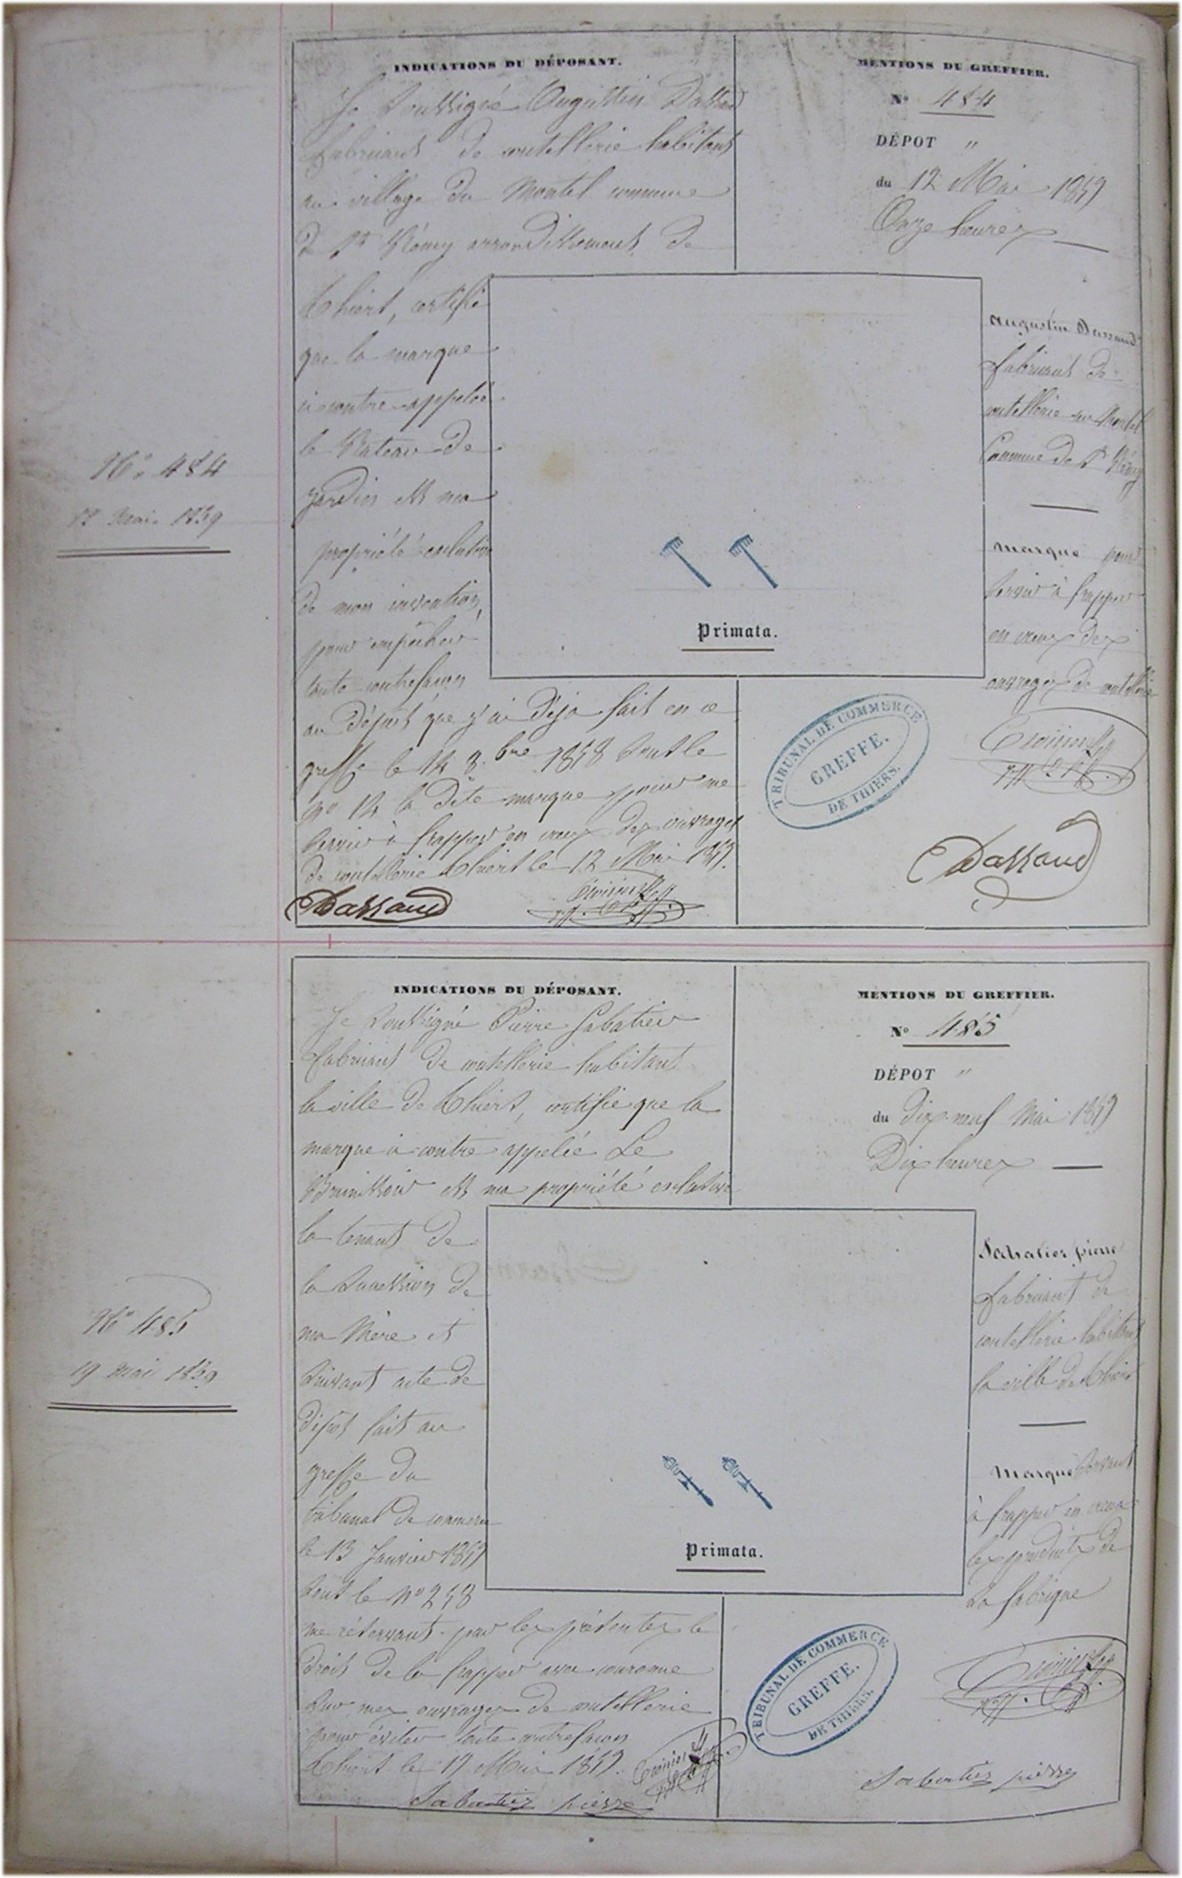 INDICATIONS DU DÉPOSANT.
Je Soussigné Augustin Dassaud
fabricant de coutellerie habitant
au village du Montel commune
de St Rémy arrondissement de
Thiers, certifie
que la marque
ci contre appelée
le Rateau de
jardin est ma
propriété exclusive
de mon invention,
pour empêcher
toute contrefaçon
au Dépôt que j'ai déjà fait en ce
greffe le 14 8.bre 1858 sous le
no 14 la dite marque pour me
servir à frapper en creux des ouvrages
de coutellerie Thiers le 12 Mai 1859.
Dassaud
MENTIONS DU GREFFIER.
No 484
DÉPOT "
du 12 Mai 1859
Onze heures
Augustin Dassaud
fabricant de
coutellerie au Montel
Commune de St Rémy
marque pour
servir à frapper
en creux des
ouvrages de coutellerie
Dassaud
Primata.
TRIBUNAL DE COMMERCE
GREFFE.
DE THIERS.
No 484
12 mai 1859
INDICATIONS DU DÉPOSANT.
Je Soussigné Pierre Sabatier
fabricant de coutellerie habitant
la ville de Thiers, certifie que la
marque ci contre appelée Le
est ma propriété exclusive
la tenant de
la succession de
ma Mère et
suivant acte de
dépôt fait au
greffe du
tribunal de commerce
le 13 Janvier 1859
sous le No 258
me réservant par les présentes le
droit de la frapper avec couronne
sur mes ouvrages de coutellerie
pour éviter toute contrefaçon
Thiers le 19 Mai 1859.
Sabatier pierre
MENTIONS DU GREFFIER.
No 485
DÉPOT "
du Dix neuf Mai 1859
Dix heures
Sabatier pierre
fabricant de
coutellerie habitant
la ville de Thiers
Marque servant
à frapper en creux
les produits de
sa fabrique
Sabatier pierre
Primata.
TRIBUNAL DE COMMERCE
GREFFE.
DE THIERS.
No 485
19 mai 1859